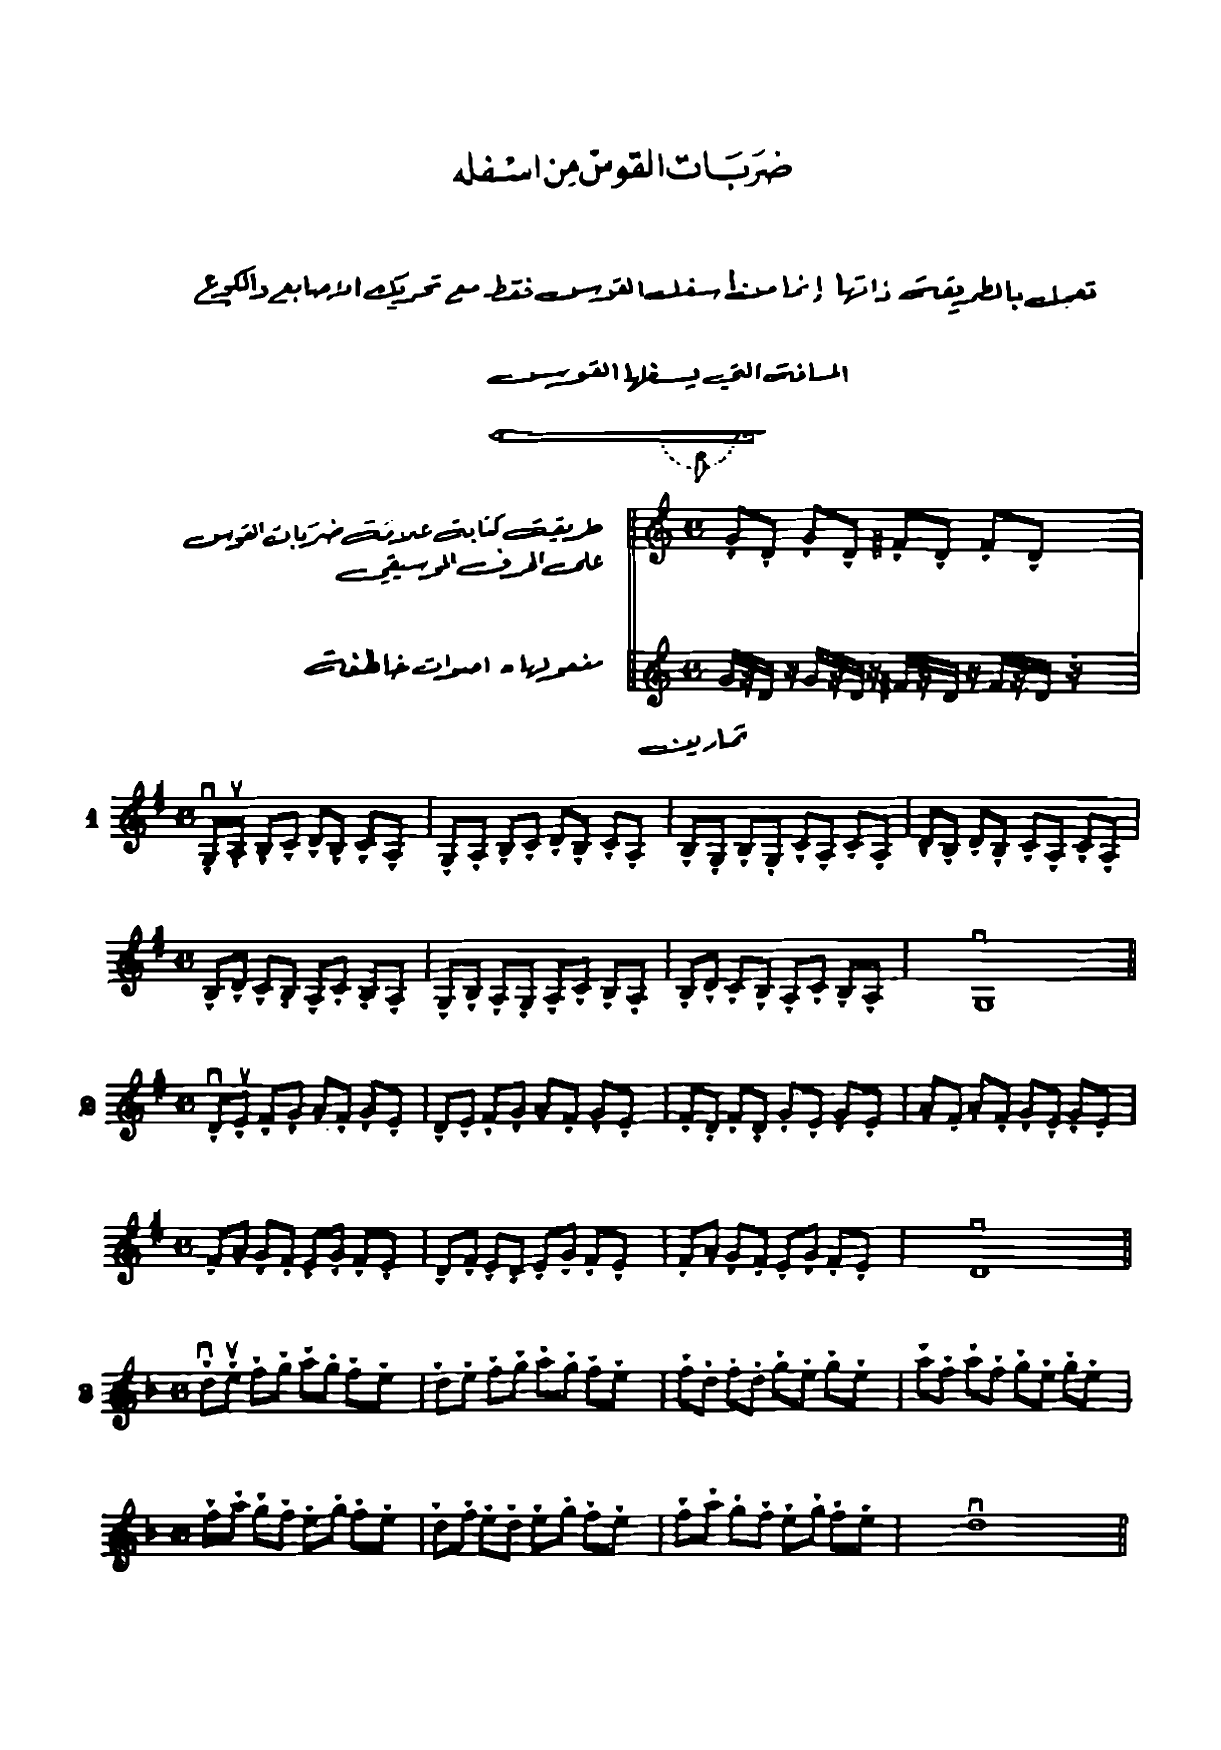 ضَربَات القوسْ مِن اسْفله
تعمل بالطريقة ذاتها إنما من اسفل القوس فقط مع تحريك الاصابع والكوع
المسافة التي يسفلها القوس
طريقة كتابة علامة ضربات القوس
على الحرف الموسيقي
مفعولها ٠ اصوات خاطفة
تمارين
1
2
3